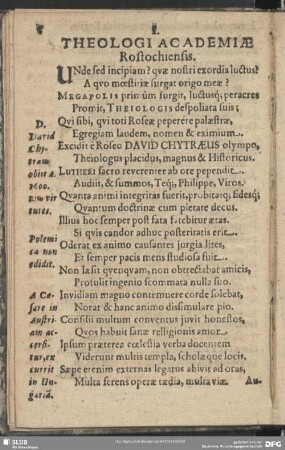 I.
THEOLOGI ACADEMIÆ
Rostochiensis.
UNde sed incipiam? quæ nostri exordia luctus?
A quo mœstitiæ surgat origo meæ?
MEGAPOLIS primùm surgit, luctusq; peractes
Promit, THEIOLOGIS despoliata suis;
Qui sibi, qui toti Roseæ peperére palæstræ,
Egregiam laudem, nomen & eximium.
Excidit è Roseo DAVID CHYTRÆUS olympo,
Theiologus placidus, magnus & Historicus.
LUTHERI sacro reverenter ab ore pependit
Audiit, & summos, Teq́;, Philippe, Viros.
Quanta animi integritas fuerit, probitasq;, fidesq;
Quantum doctrinæ cum pietate decus.
Illius hoc semper post fata fatebitur ætas.
Si quis candor adhuc posteritatis erit.
Oderat ex animo causantes jurgia lites,
Et semper pacis mens studiosa fuit.
Non læsit quenquam, non obtrectabat amicis,
Protulit ingenio scommata nulla suo.
Invidiam magno contemnere corde solebat,
Norat & hanc animo dissimulare pio.
Consilii multum conventus juvit honestos,
Quos habuit sanæ relligionis amor
Ipsum præterea cœlestia verba docentem
Viderunt multis templa, scholæque locis.
Sæpe etenim externas legatus abivit ad oras,
Multa ferens operæ tædia, multa viæ.
Au-
D.
David
Chy-
træus
obiit A.
1600.
Ejus vir
tutes.
Polemi
ca non
edidit.
A Ca-
sare in
Austri-
am ac-
cersi-
tur, ex
currit
in Un-
gariã.
SLUB
DFG